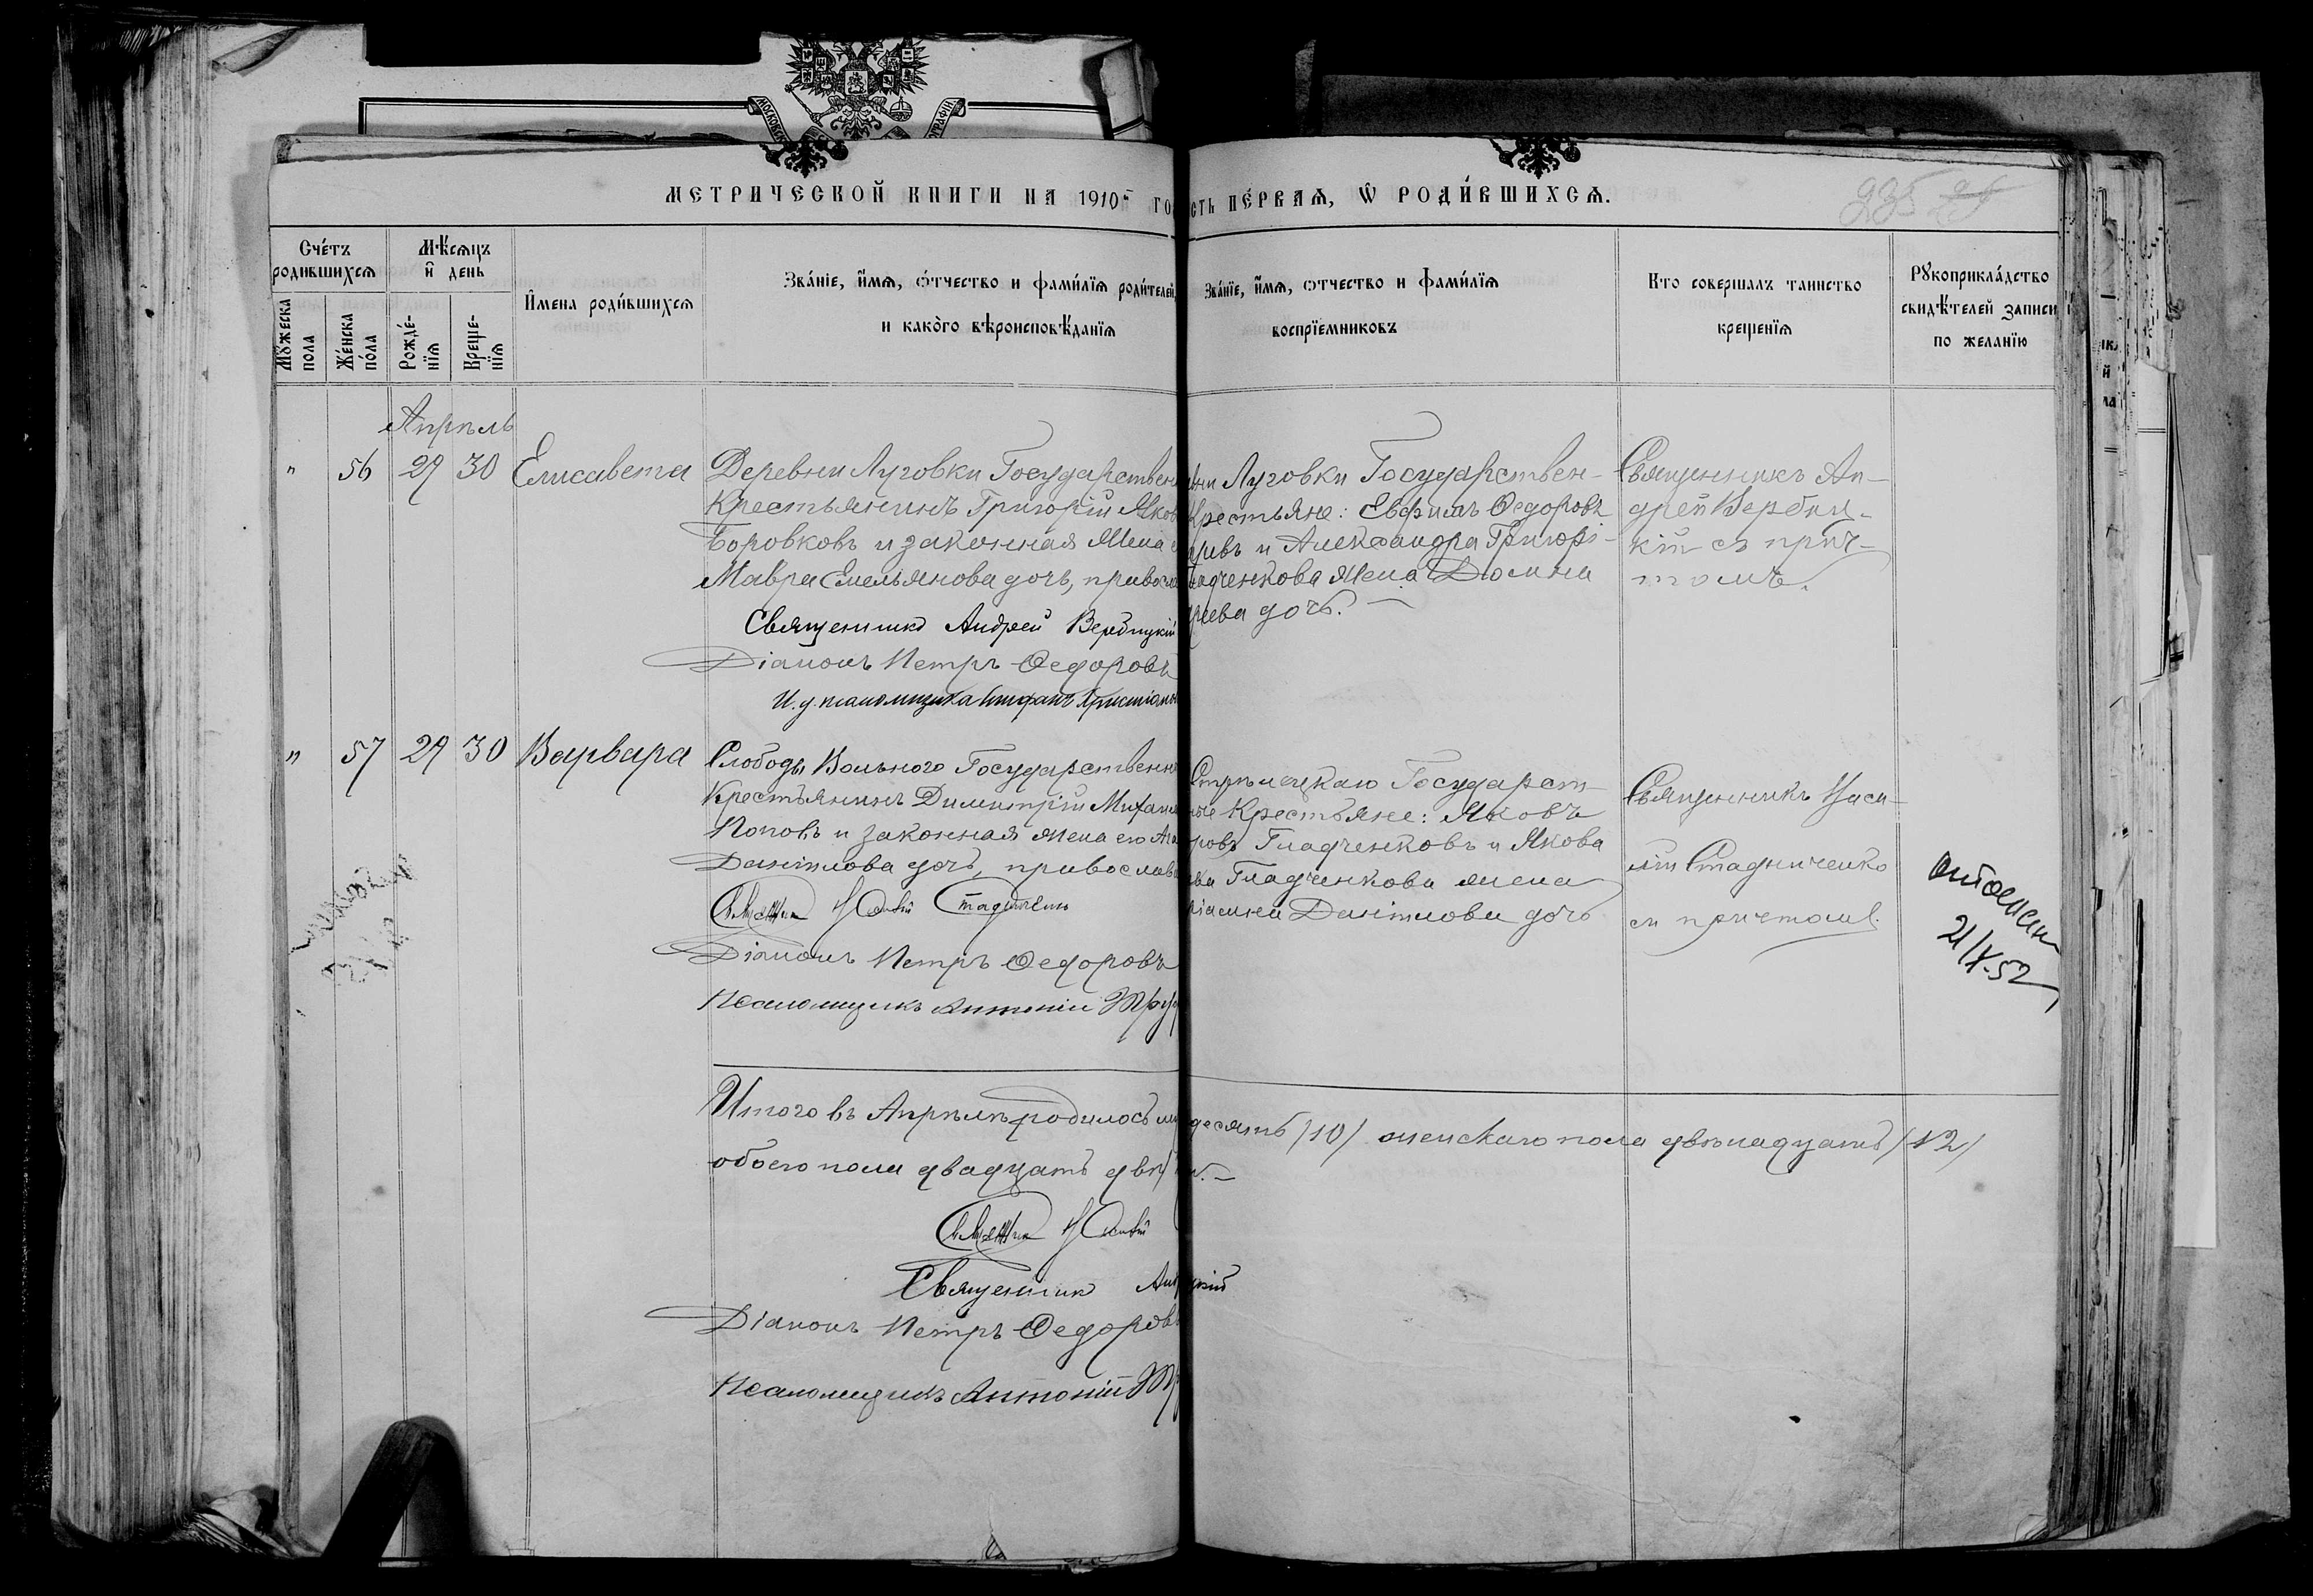 МЕТРИЧЕСКОЙ КНИГИ НА 1910
СТЬ ПЕ́РВАѦ, Ѡ҆ РОДИ́ВШИХСѦ.
235
Сче́тъ родившихсѧ
Мѣ́сѧцъ и҆ день
Мꙋжеска пола
Же́нска по́ла
Рожде́-нїѧ
Креще-нїѧ
И҆мена роди́вшихсѧ
Зва́нїе, и҆́мѧ, ѻ҆́тчество и фами́лїѧ роди́телей,
и како́го вѣроисповѣ́данїѧ
Зва́нїе, и҆́мѧ, ѻтчество и фами́лїѧ
воспрїемниковъ
Кто совершалъ таинство
крещенїѧ
Рꙋкоприкла́дство
свидѣ́телей записи
по желанїю
Апрѣль
" 56 29 30 Елисавета
Деревни Луговки Государствен
Крестьянинъ Григорій Яков
Боровковъ и законная жена
Мавра Емельянова дочь, правосла
Священникъ Андрей Вербицкій
Діаконъ Петръ Ѳедоровъ
И. д. псаломщика
вни Луговки Государствен-
Крестьяне: Евфимъ Ѳедоровъ
и Александра Григорі-
жена Домна
дочь.
Священникъ Ан-
дрей Вербиц-
кій съ прич-
томъ.
" 57 29 30 Варвара
Слободы Вольнаго Государственн
Крестьянинъ Димитрій Михаил
Поповъ и законная жена его Ага
Даніилова дочь, православн
Діаконъ Петръ Ѳедоровъ
Псаломщикъ Антоній
Стрѣлецкаго Государст-
ные Крестьяне: Яковъ
Гладченковъ и Якова
Гладченкова жена
Даніилова дочь
Священникъ Васи-
лій Стадниченко
съ причтомъ.
21/X-52
Итого въ Апрѣлѣ родилось му
десять /10/ женскаго пола двѣнадцать /12/
обоего пола двадцать два
Священникъ Анд
цкій
Діаконъ Петръ Ѳедоровъ
Псаломщикъ Антоній